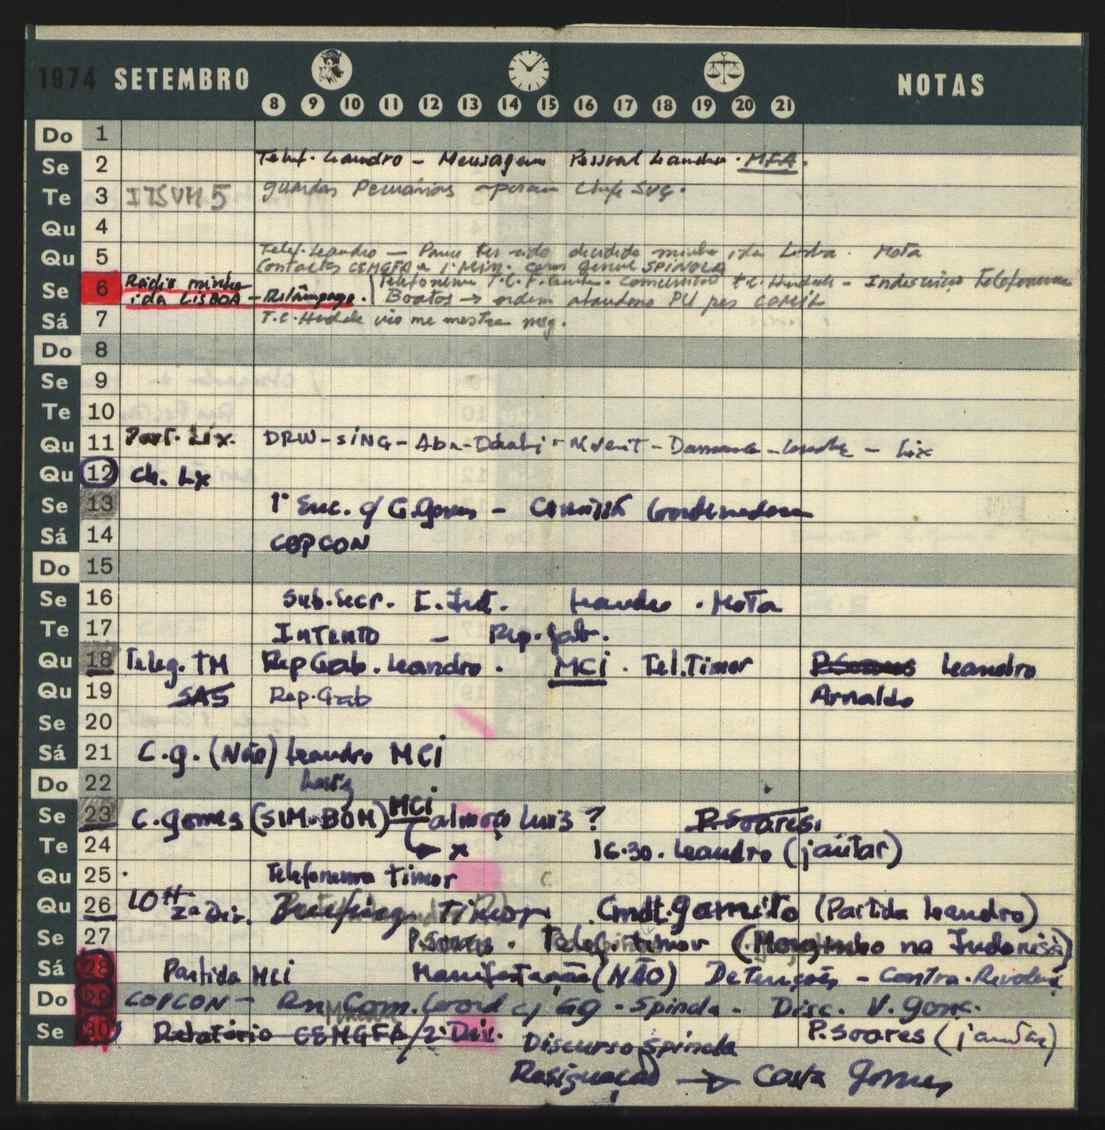 1974 SETEMBRO NOTAS
8 9 10 11 12 13 14 15 16 17 18 19 20 21
Do 1
Se 2 Telef. Leandro - Mensagem Pessoal Leandro. MFA.
Te 3 guardas Chefe
Qu 4
Qu 5 Telef. Leandro - ter sido decidido minha ida Lisboa. Mota
Contactos CEMGFA e 1º Min. com General SPINOLA
Se 6 Rádio minha Telefonema T.C. - Telefonema
ida LISBOA - Relâmpago. Boatos → ordem abandono PU por
Sá 7 T.C. vio me mostrar msg.
Do 8
Se 9
Te 10
Qu 11 Part. Lix. DRW - SING - Abu-Dhabi - - - - Lix
Qu 12 Ch. Lx
Se 13 1º Enc. c/ C. Gomes - Comissão Coordenadora
Sá 14 COPCON
Do 15
Se 16 Sub. Secr. E. Leandro. Mota
Te 17 INTENTO - Rep. Gab.
Qu 18 Teleg. TM Rep Gab. Leandro. MCI. Tel. Timor P. Soares Leandro
Qu 19 SAS Rep. Gab Arnaldo
Se 20
Sá 21 C.g. (Não) Leandro MCI
Do 22 Luis
Se 23 C. gomes (SIM-BOM) MCI almoço Luis ? P. Soares.
Te 24 → x 16.30. Leandro (jantar)
Qu 25 Telefonema Timor
Qu 26 10H 2ª Div. Briefing Timor Cmdt. Gamito (Partida Leandro)
Se 27 P. Soares. Timor (na Indonésia)
Sá 28 Partida MCI Manifestação (NÃO) Detenções - Contra-Revoluç
Do 29 COPCON - Rn Com. Coord c/ GG - Spinola - Disc. V. Gonc.
Se 30 Relatório CEMGFA/2ª Div. Discurso Spinola P. Soares (jantar)
Resignação → Costa Gomes